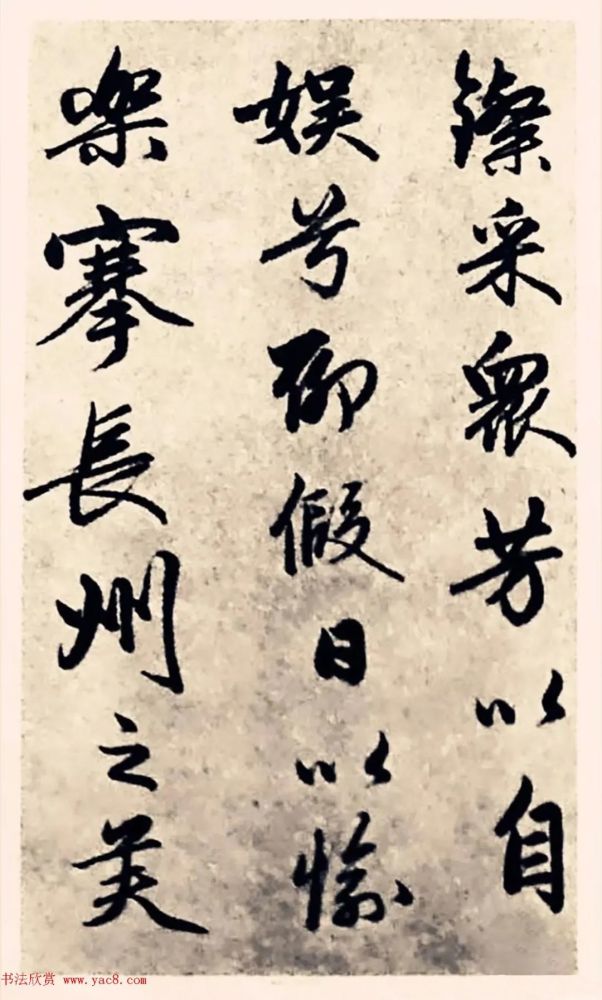 采衆芳以自
娱兮聊假日以愉
樂搴長州之美
书法欣赏 www.yac8.com